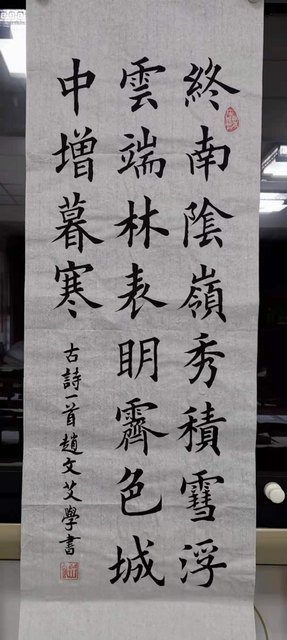 終南陰嶺秀積雪浮
雲端林表明霽色城
中增暮寒
古詩一首趙文艾學書